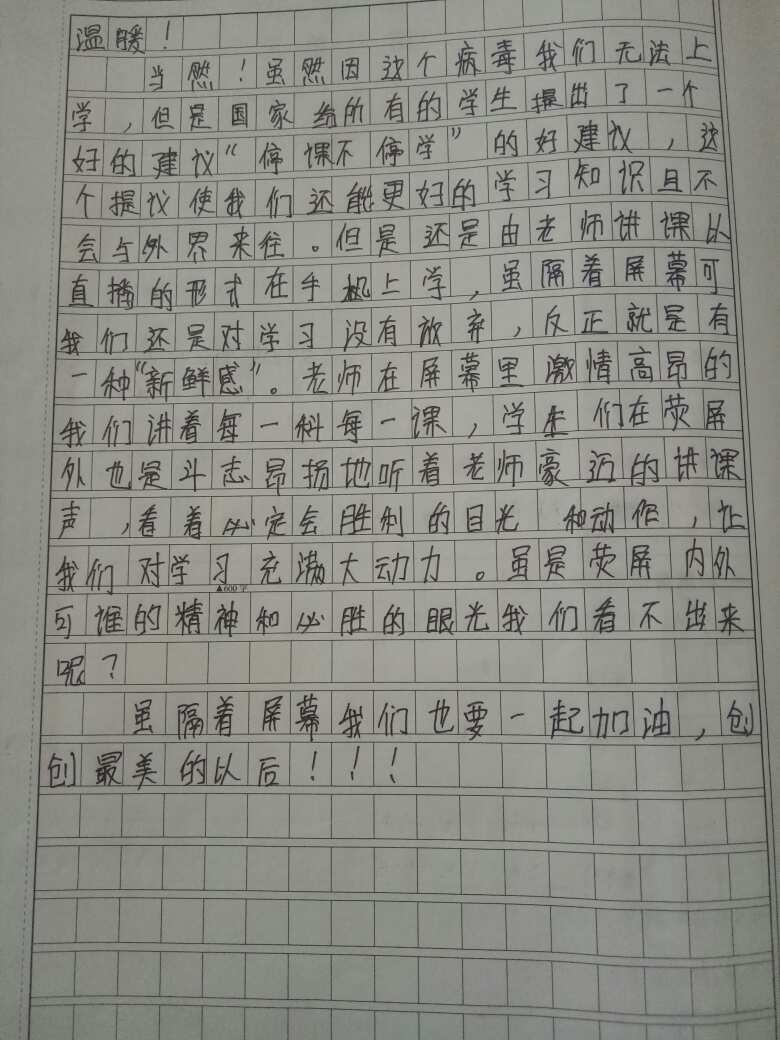 温暖！
当然！虽然因这个病毒我们无法上
学，但是国家给所有的学生提出了一个
好的建议“停课不停学”的好建议，这
个提议使我们还能更好的学习知识且不
会与外界来往。但是还是由老师讲课以
直播的形式在手机上学，虽隔着屏幕可
我们还是对学习没有放弃，反正就是有
一种“新鲜感”。老师在屏幕里激情高昂的
我们讲着每一科每一课，学生们在荧屏
外也是斗志昂扬地听着老师豪迈的讲课
声，看着必定会胜利的目光和动作，让
我们对学习充满大动力。虽是荧屏内外
▲600字
可谁的精神和必胜的眼光我们看不出来
呢？
虽隔着屏幕我们也要一起加油，创
创最美的以后！！！